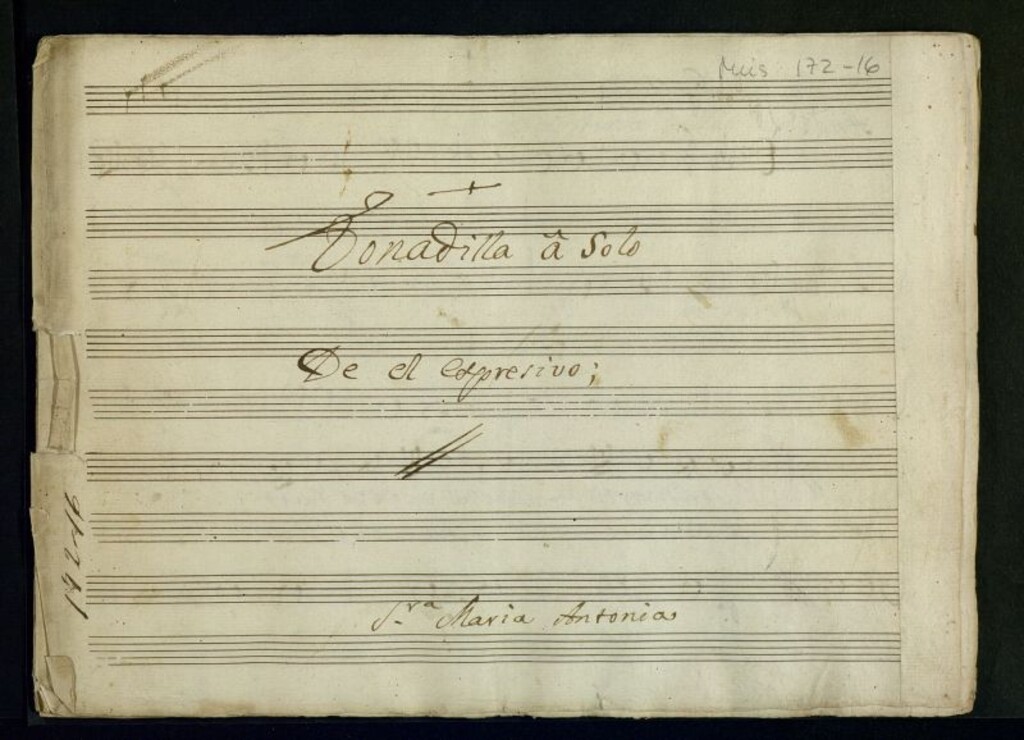 Mus 172-16
Tonadilla â Solo
De el expresivo;
172-16
S.ra Maria Antonia